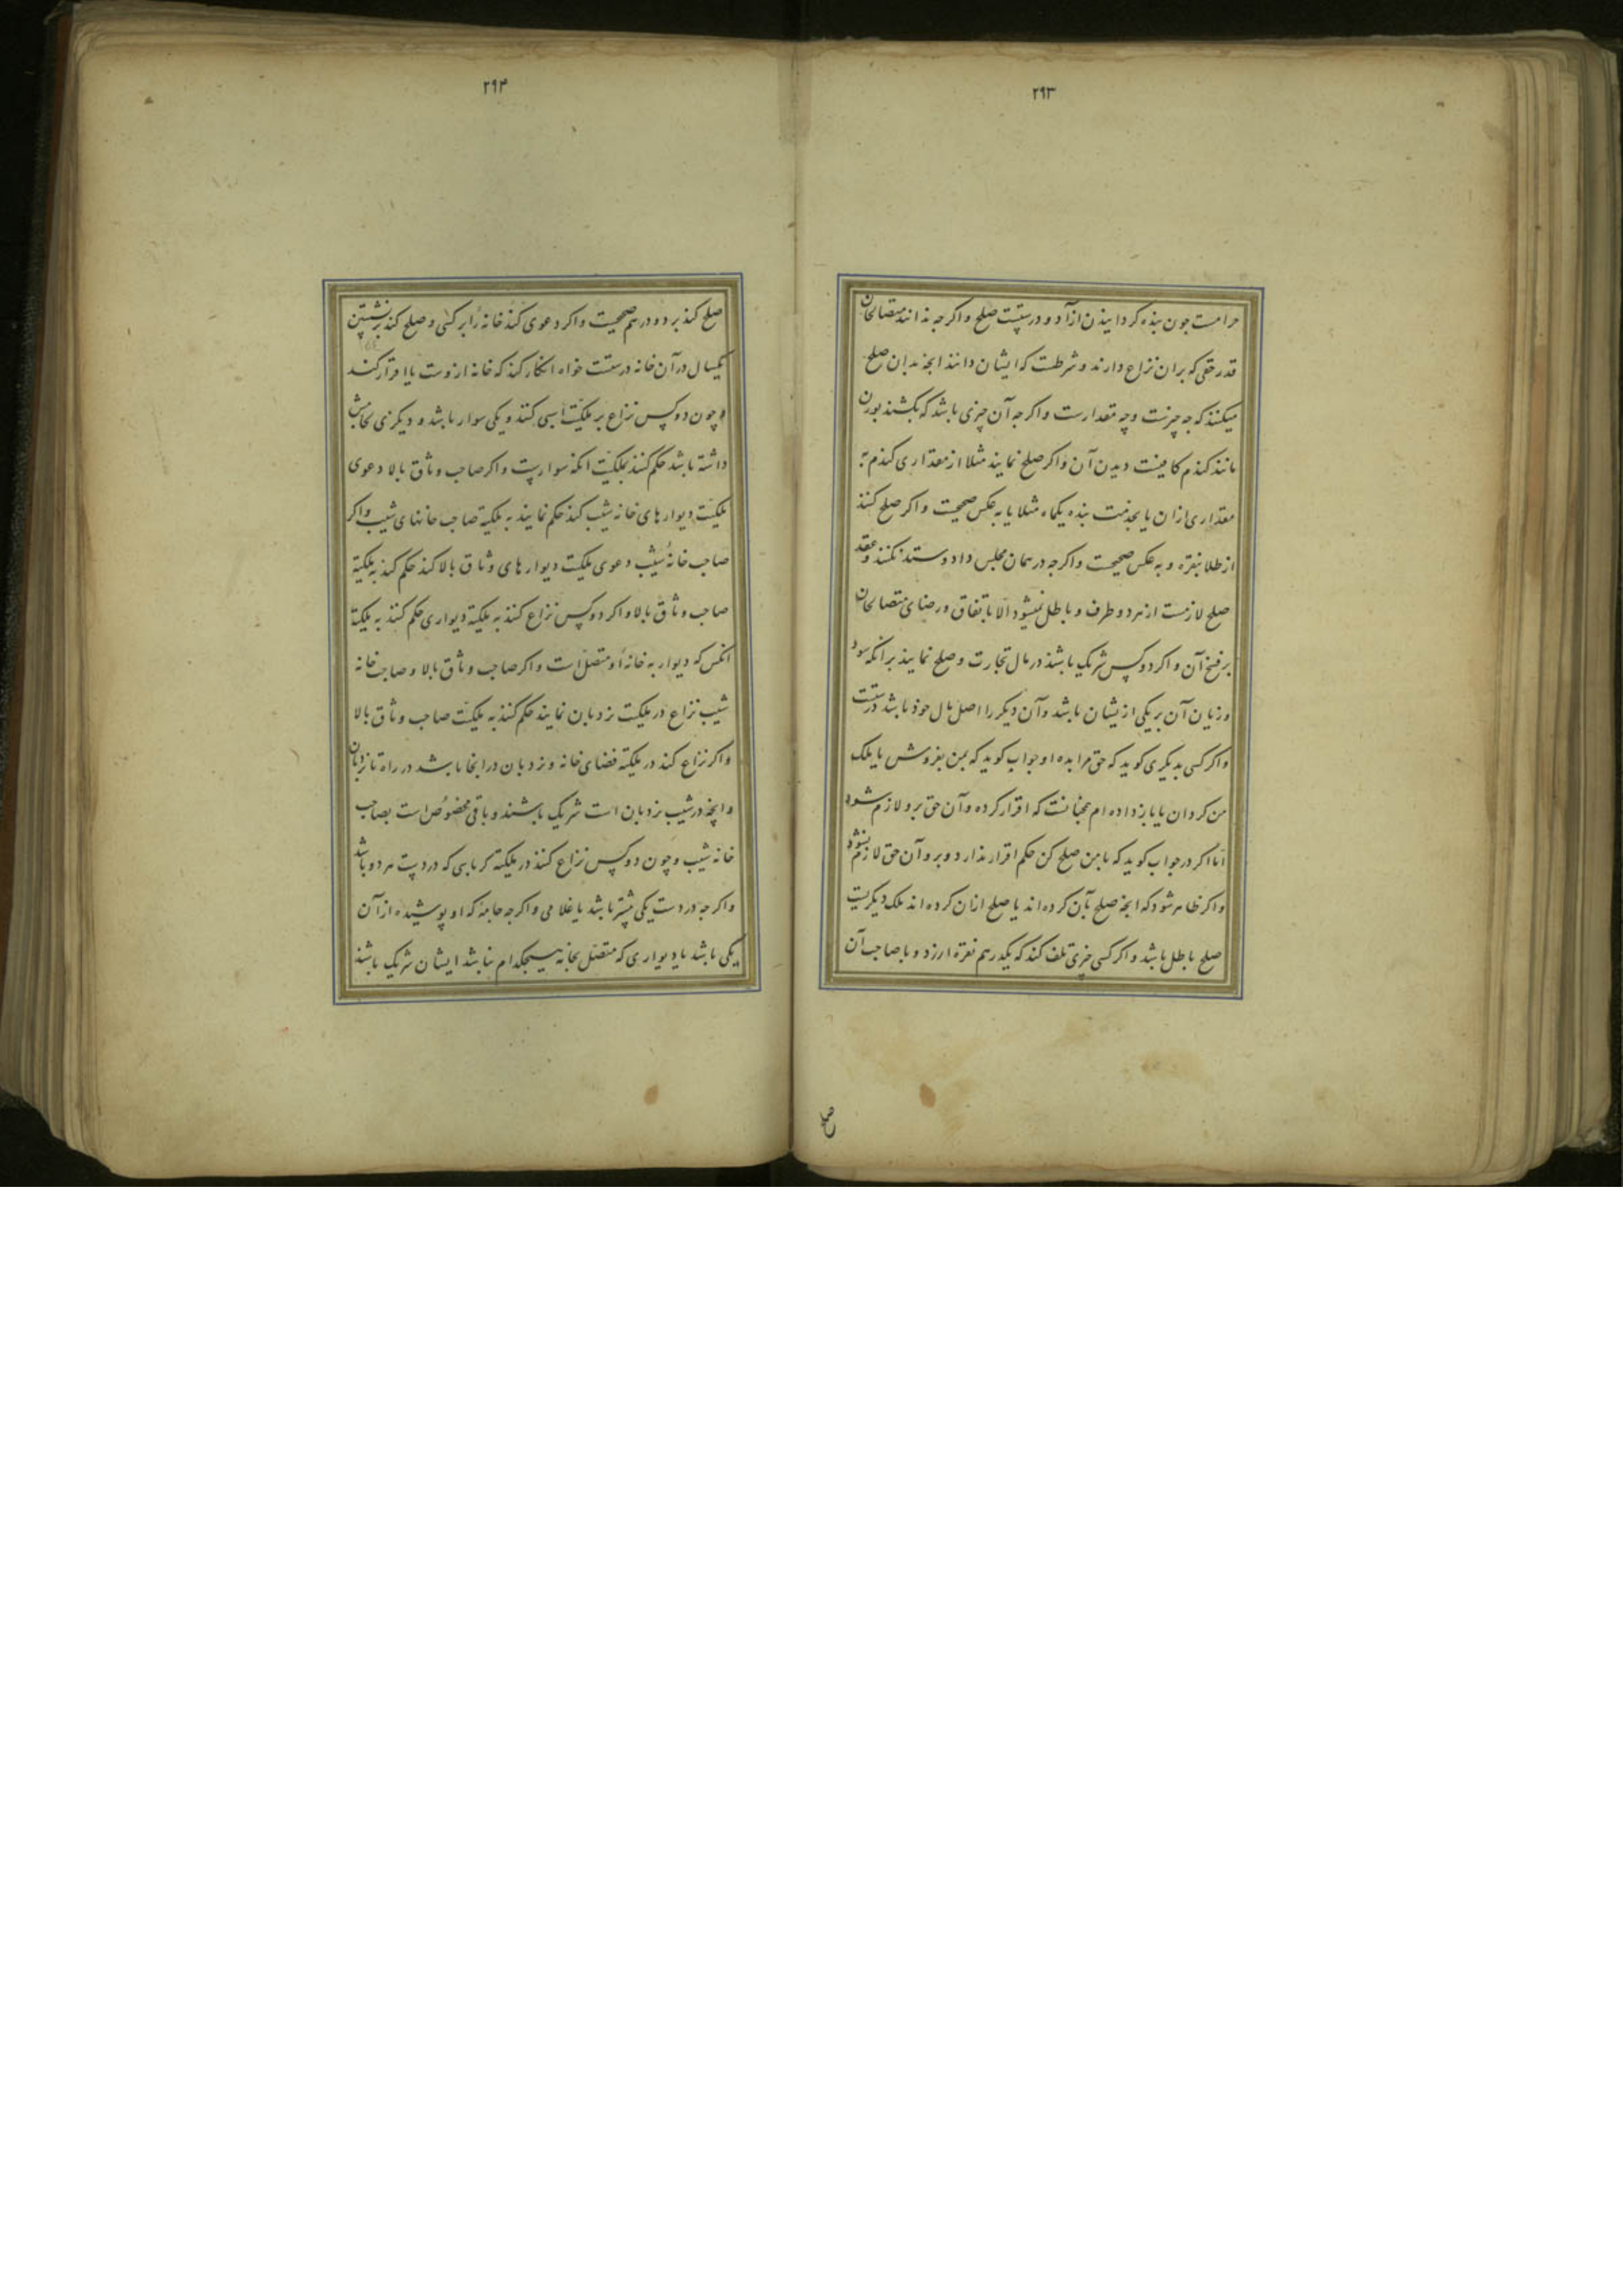 ۲۹۳
حرامست جون بنده کردانیدن ازآد و درستست صلح واکر جه ندانند متصالحان
قدر حقی که بران نزاع دارند و شرطست که ایشان دانند انجه بدان صلح
میکنند که جه چیزست وچه مقدارست واکر جه آن چیزی باشد که بکشند بوزن
مانند کندم کافیست دیدن آن واکر صلح نمایند مثلا از مقداری کندم به
مقداری ازان یا بخدمت بنده یکماه مثلا یا به عکس صحیحست واکر صلح کنند
از طلا بنقره و به عکس صحیحست واکرجه در همان مجلس داد وستد نکنند وعقد
صلح لازمست از هر دو طرف و باطل نمیشود الّا باتفاق ورضای متصالحان
بر فسخ آن واکر دو کس شریک باشند در مال تجارت وصلح نمایند برانکه سود
وزیان آن بر یکی ازیشان باشد وآن دیکر را اصل مال خوذ باشد درستست
واکر کسی بدیکری کوید که حق مرا بده او جواب کوید که بمن بفروش یا ملک
من کردان یا باز داده ام همچنانست که اقرار کرده وآن حق برو لازم شود
امّا اکر در جواب کوید که با من صلح کن حکم اقرار ندارد وبرو آن حق لازم نشود
واکر ظاهر شود که انجه صلح بآن کرده اند یا صلح ازان کرده اند ملک دیکریست
صلح باطل باشد واکر کسی چیزی تلف کند که یکدرهم نقره ارزد و با صاحب آن
۲۹۴
صلح کند بر دو درهم صحیحست واکر دعوی کند خانه را بر کسی وصلح کند بر نشستن
یکسال در آن خانه درستست خواه انکار کند که خانه ازوست یا اقرار کند
و چون دو کس نزاع بر ملکیّت اسبی کنند ویکی سوار باشد و دیکری لجامش
داشته باشد حکم کنند بملکیّت انکه سوارست واکر صاحب وثاق بالا دعوی
ملکیّت دیوارهای خانه شیب کند حکم نمایند به ملکیة صاحب خانهای شیب واکر
صاحب خانه شیب دعوی ملکیت دیوارهای وثاق بالا کند حکم کنند به ملکیّة
صاحب وثاق بالا واکر دو کس نزاع کنند به ملکیة دیواری حکم کنند به ملکیة
انکس که دیوار به خانه او متصل است واکر صاحب وثاق بالا وصاحب خانه
شیب نزاع در ملکیت نردبان نمایند حکم کنند به ملکیّت صاحب وثاق بالا
واکر نزاع کنند در ملکیّة فضای خانه ونردبان درانجا باشد در راه تا نردبان
وانچه در شیب نردبان است شریک باشند وباقی مخصوص است بصاحب
خانه شیب وچون دو کس نزاع کنند در ملکیّة کرباسی که در دست هر دو باشد
واکر جه در دست یکی بیشتر باشد یا غلامی واکر جه جامه که او پوشیده از آن
یکی باشد یا دیواری که متصل بخانه هیچکدام نباشد ایشان شریک باشند